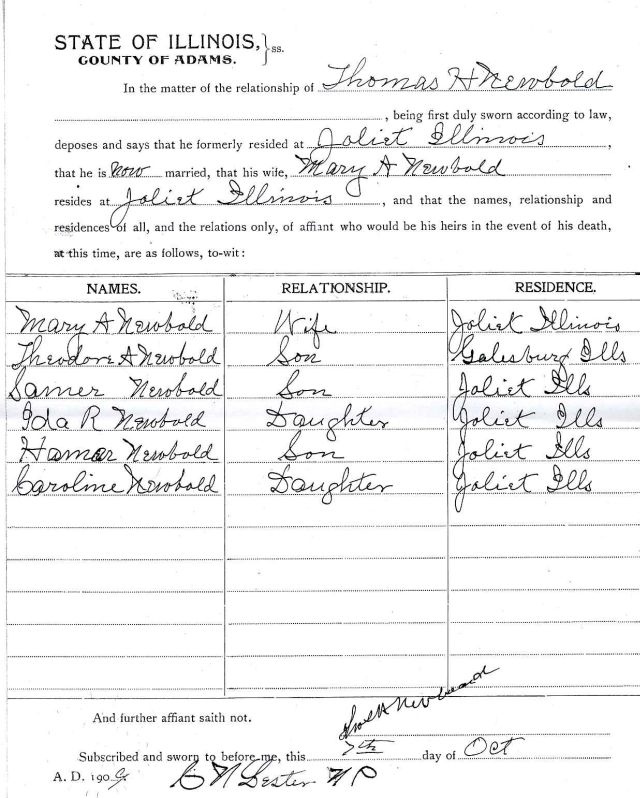 STATE OF ILLINOIS, } ss.
COUNTY OF ADAMS.
In the matter of the relationship of Thomas H Newbold
, being first duly sworn according to law,
deposes and says that he formerly resided at Joliet Illinois ,
that he is now married, that his wife, Mary A Newbold
resides at Joliet Illinois , and that the names, relationship and
residences of all, and the relations only, of affiant who would be his heirs in the event of his death,
at this time, are as follows, to-wit:
NAMES. RELATIONSHIP. RESIDENCE.
Mary A Newbold Wife Joliet Illinois
Theodore A Newbold Son Galesburg Ills
Samer Newbold Son Joliet Ills
Ida R Newbold Daughter Joliet Ills
Hamar Newbold Son Joliet Ills
Caroline Newbold Daughter Joliet Ills
And further affiant saith not.
Subscribed and sworn to before me, this 7th day of Oct
A. D. 190 C N Lester N P